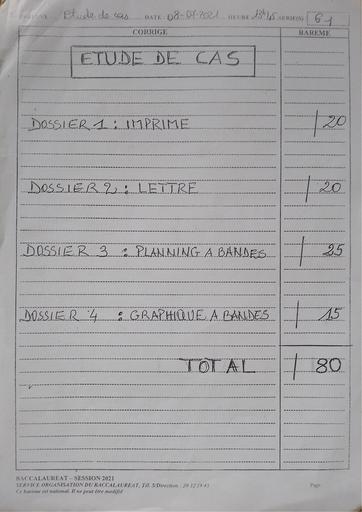 Etude de cas DATE 08-07-2021 HEURE
CORRIGE BAREME
ETUDE DE CAS
DOSSIER 1 : IMPRIME /20
DOSSIER 2 : LETTRE /20
DOSSIER 3 : PLANNING A BANDES /25
DOSSIER 4 : GRAPHIQUE A BANDES /15
TOTAL /80
BACCALAUREAT – SESSION 2021
SERVICE ORGANISATION DU BACCALAUREAT, Tél. S/Direction :
Ce barème est national. Il ne peut être modifié
Page